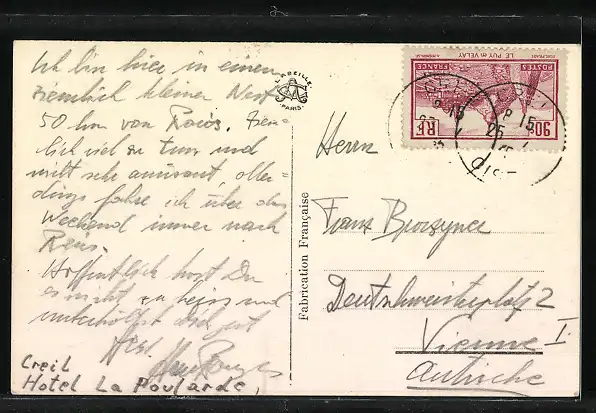 Ich bin hier in einem
ziemlich kleinen Nest
50 km von Paris. Ziem-
lich viel zu tun und
nicht sehr amüsant, aller-
dings fahre ich über das
Weekend immer nach
Paris.
Hoffentlich hast Du
es nicht zu heiss und
unterhältst Dich gut
Creil
Hotel La Poularde,
MARSEILLE
PARIS
Fabrication Française
POSTES FRANCE
LE PUY-en-VELAY
90c
RF
CREIL
OISE
Herrn
Franz
Deutschmeisterplatz 2
Vienne I.
Autriche